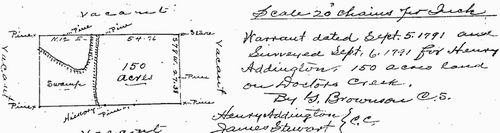 Vacant
Pine
Pine
Pine
N 12 E
54.76
Stake
Vacant
Swamp
150
acres
S 77 E 27.38
Vacant
Pine
Pine
Pine
Hickory
Pine
Vacant
Scale 20 Chains pr Inch
Warrant dated Sept. 5 1791 and
Surveyed Sept. 6, 1791 for Henry
Addington 150 acres land
on Doctors Creek.
By G. Brownson C.S.
Henry Addington
James Stewart } C.C.